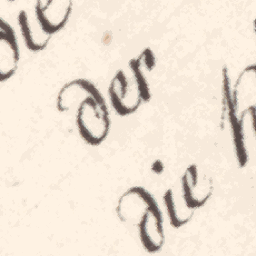 die
der
die